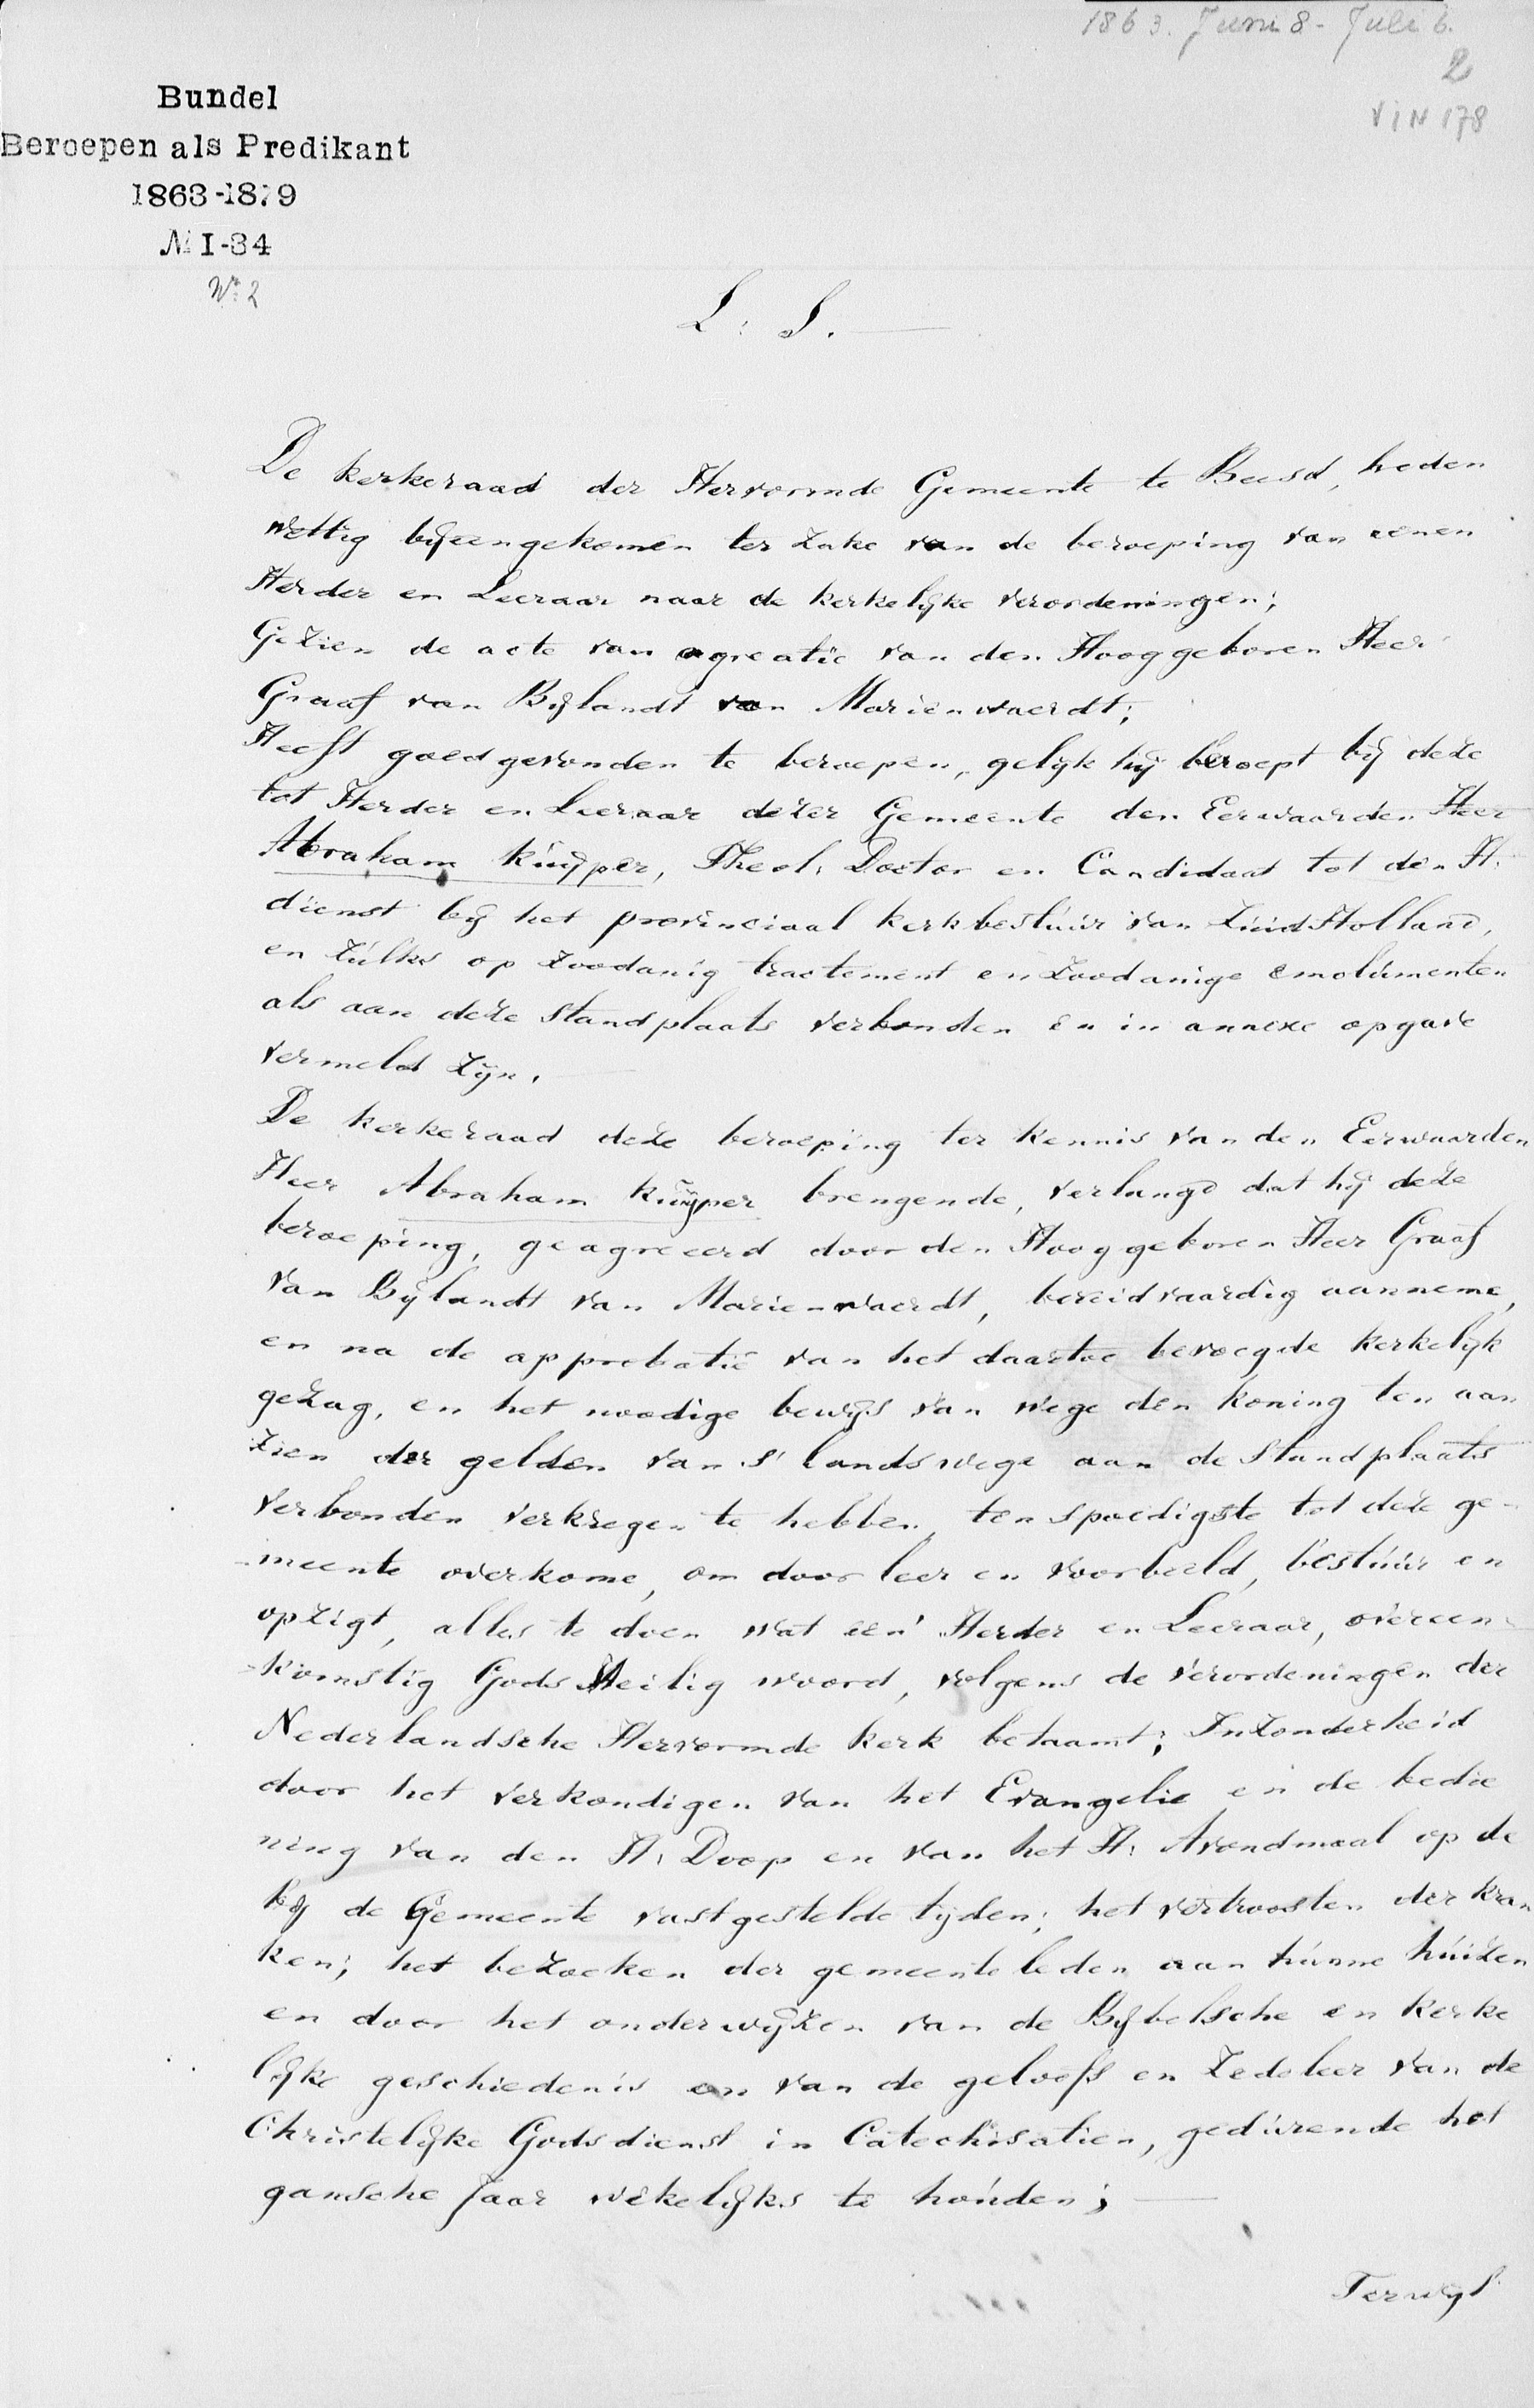 1863. Juni 8 - Juli 6.
2
VIN 178
Bundel
Beroepen als Predikant
1863-1879
№ I-34
No. 2
L. S.
De kerkeraad der Hervormde Gemeente te Beesd, heden
wettig bijeengekomen ter zake van de beroeping van eenen
Herder en Leeraar naar de kerkelijke verordeningen;
Gezien de acte van agreatie van den Hooggeboren Heer
Graaf van Bijlandt van Mariënwaerdt;
Heeft goedgevonden te beroepen, gelijk hij beroept bij deze
tot Herder en Leeraar dezer Gemeente den Eerwaarden Heer
Abraham Kuijper, Theol. Doctor en Candidaat tot den H.
dienst bij het provinciaal kerkbestuur van Zuid Holland,
en zulks op zoodanig tractement en zoodanige emolumenten
als aan deze standplaats verbonden en in annexe opgave
vermeld zijn.
De kerkeraad deze beroeping ter kennis van den Eerwaarden
Heer Abraham Kuijper brengende, verlangd dat hij deze
beroeping, geagreeerd door den Hooggeboren Heer Graaf
van Bijlandt van Marienwaerdt, bereidvaardig aanneme,
en na de approbatie van het daartoe bevoegde kerkelijk
gezag, en het noodige bewijs van wege den koning ten aan
zien der gelden van 's lands wege aan de standplaats
verbonden verkregen te hebben, ten spoedigste tot deze ge-
-meente overkome, om door leer en voorbeeld, bestuur en
opzigt, alles te doen wat een' Herder en Leeraar, overeen-
-komstig Gods Heilig woord, volgens de verordeningen der
Nederlandsche Hervormde kerk betaamt; Inzonderheid
door het verkondigen van het Evangelie en de bedie
ning van den H. Doop en van het H. Avondmaal op de
bij de Gemeente vastgestelde tijden; het vertroosten der kran
ken; het bezoeken der gemeente leden aan hunne huizen
en door het onderwijzen van de Bijbelsche en kerke
lijke geschiedenis en van de geloofs en Zedeleer van de
Christelijke Godsdienst in Catechisatien, gedurende het
gansche jaar wekelijks te houden;
Terwijl